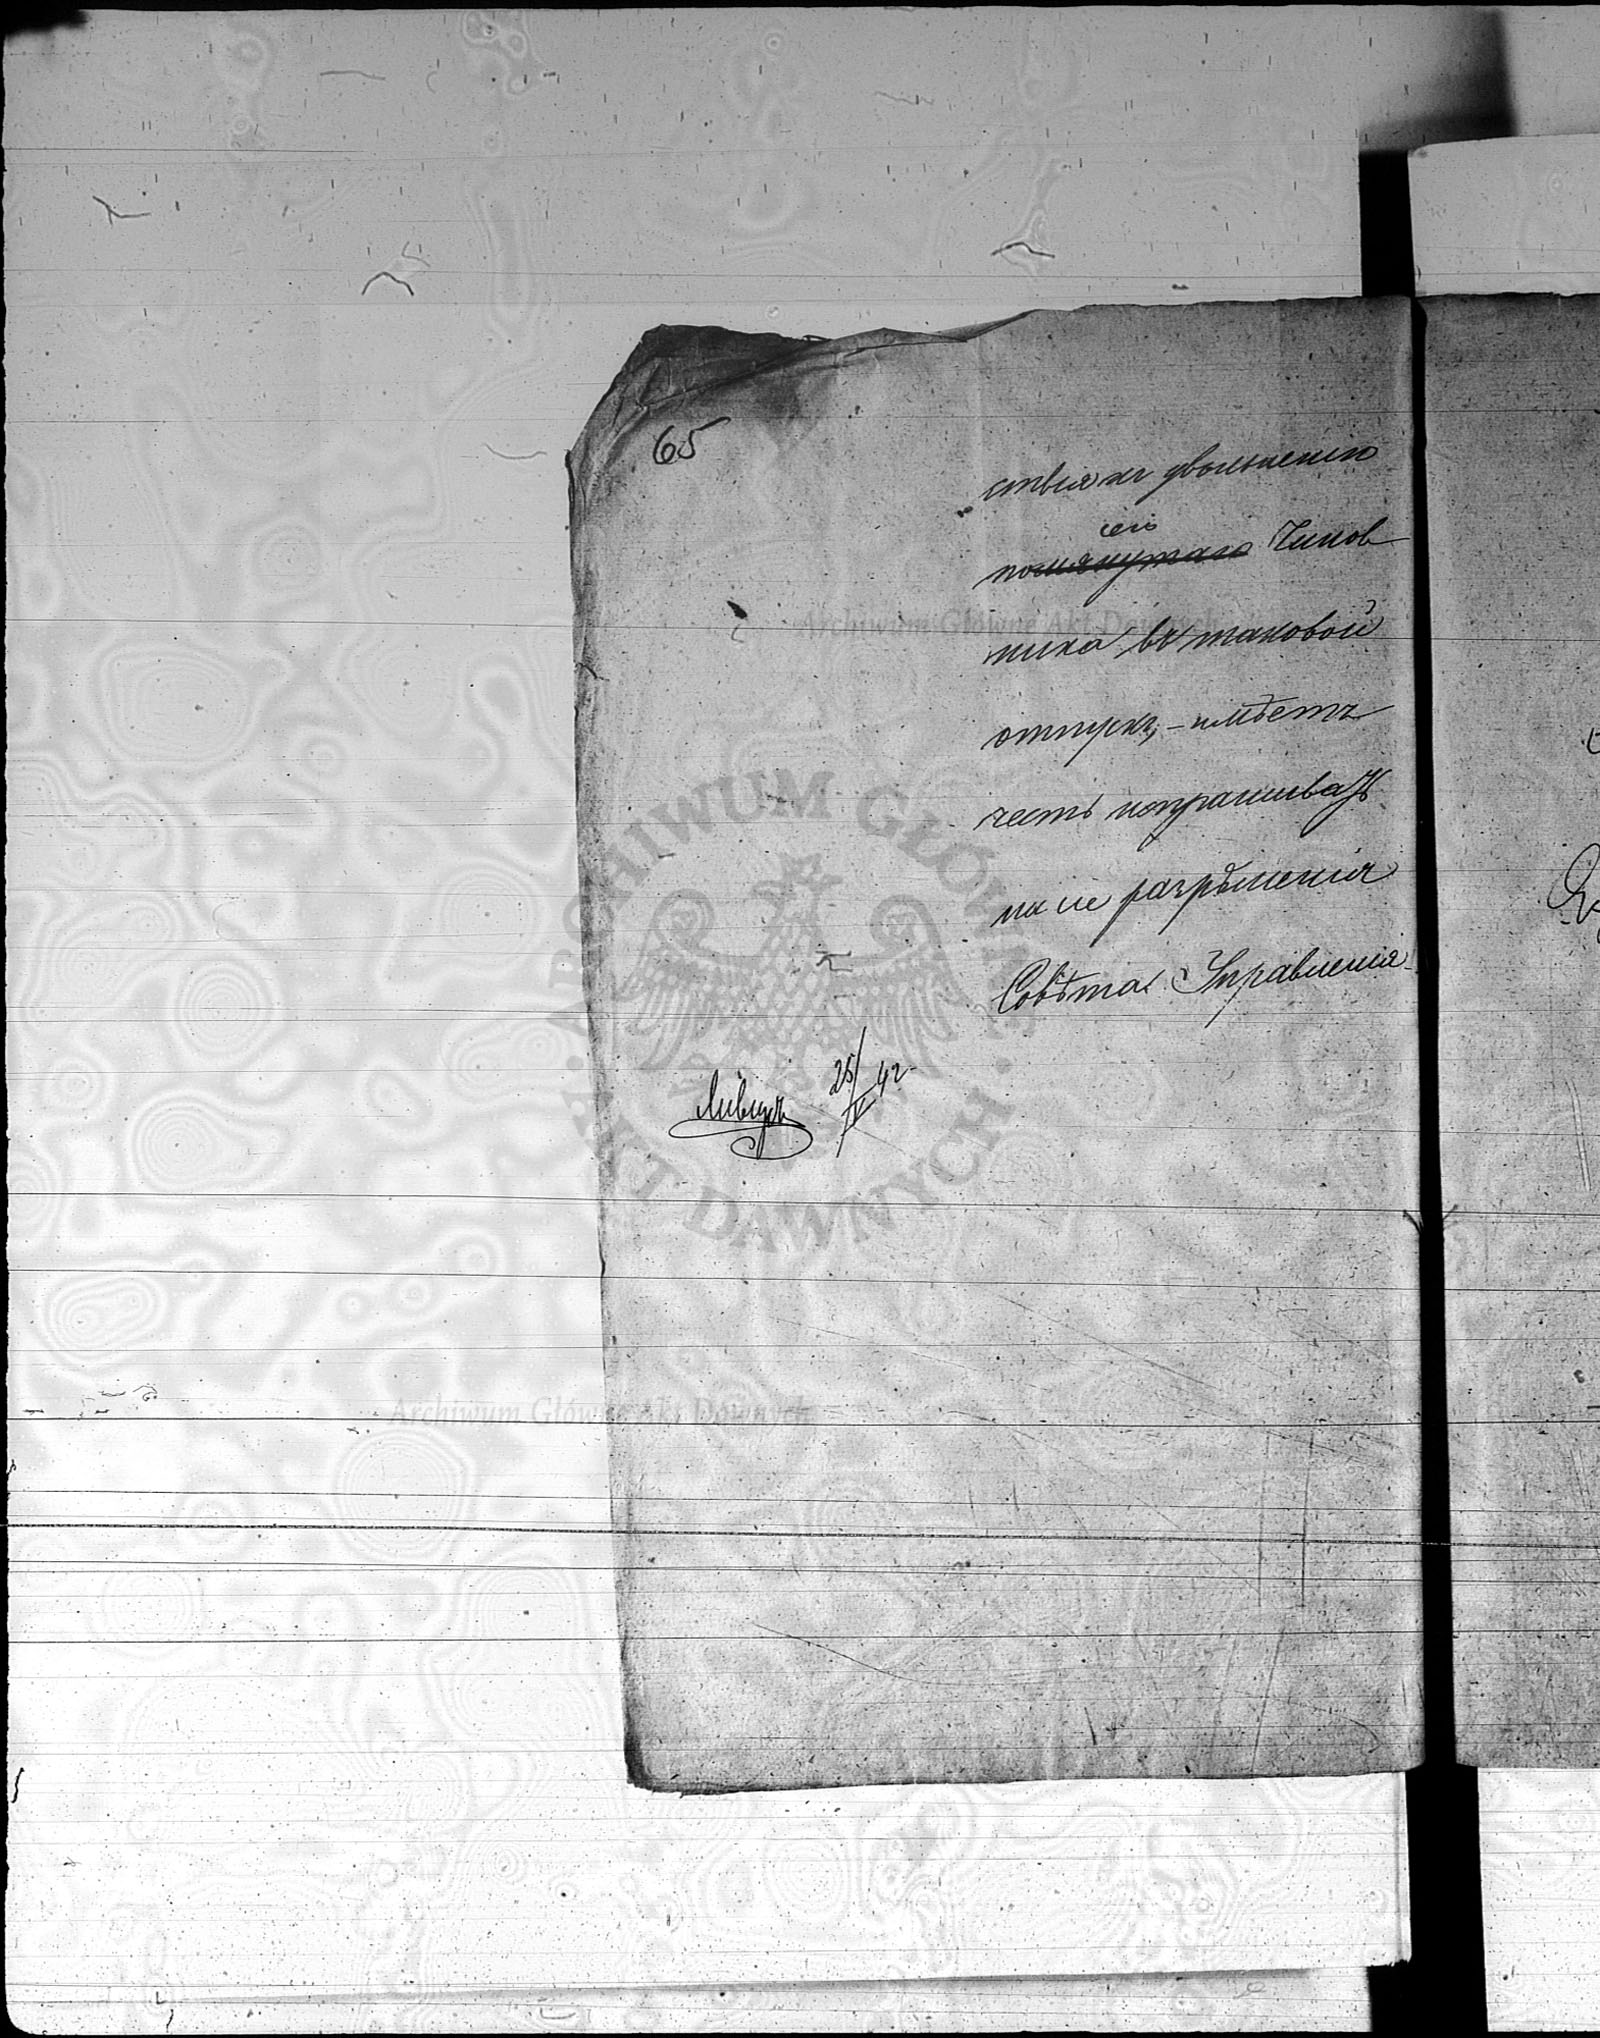 65
ствія къ увольненію
сего
помянутаго Чинов
ника въ таковой
отпускъ, – имѣетъ
честь испрашивать
на сіе разрѣшенія
Совѣта Управленія
25/IV 42
Archiwum Główne Akt Dawnych
ARCHIWUM GŁÓWNE AKT DAWNYCH
Archiwum Główne Akt Dawnych